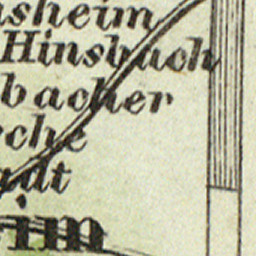 sheim
Hinsbach
bacher
che
adt
im